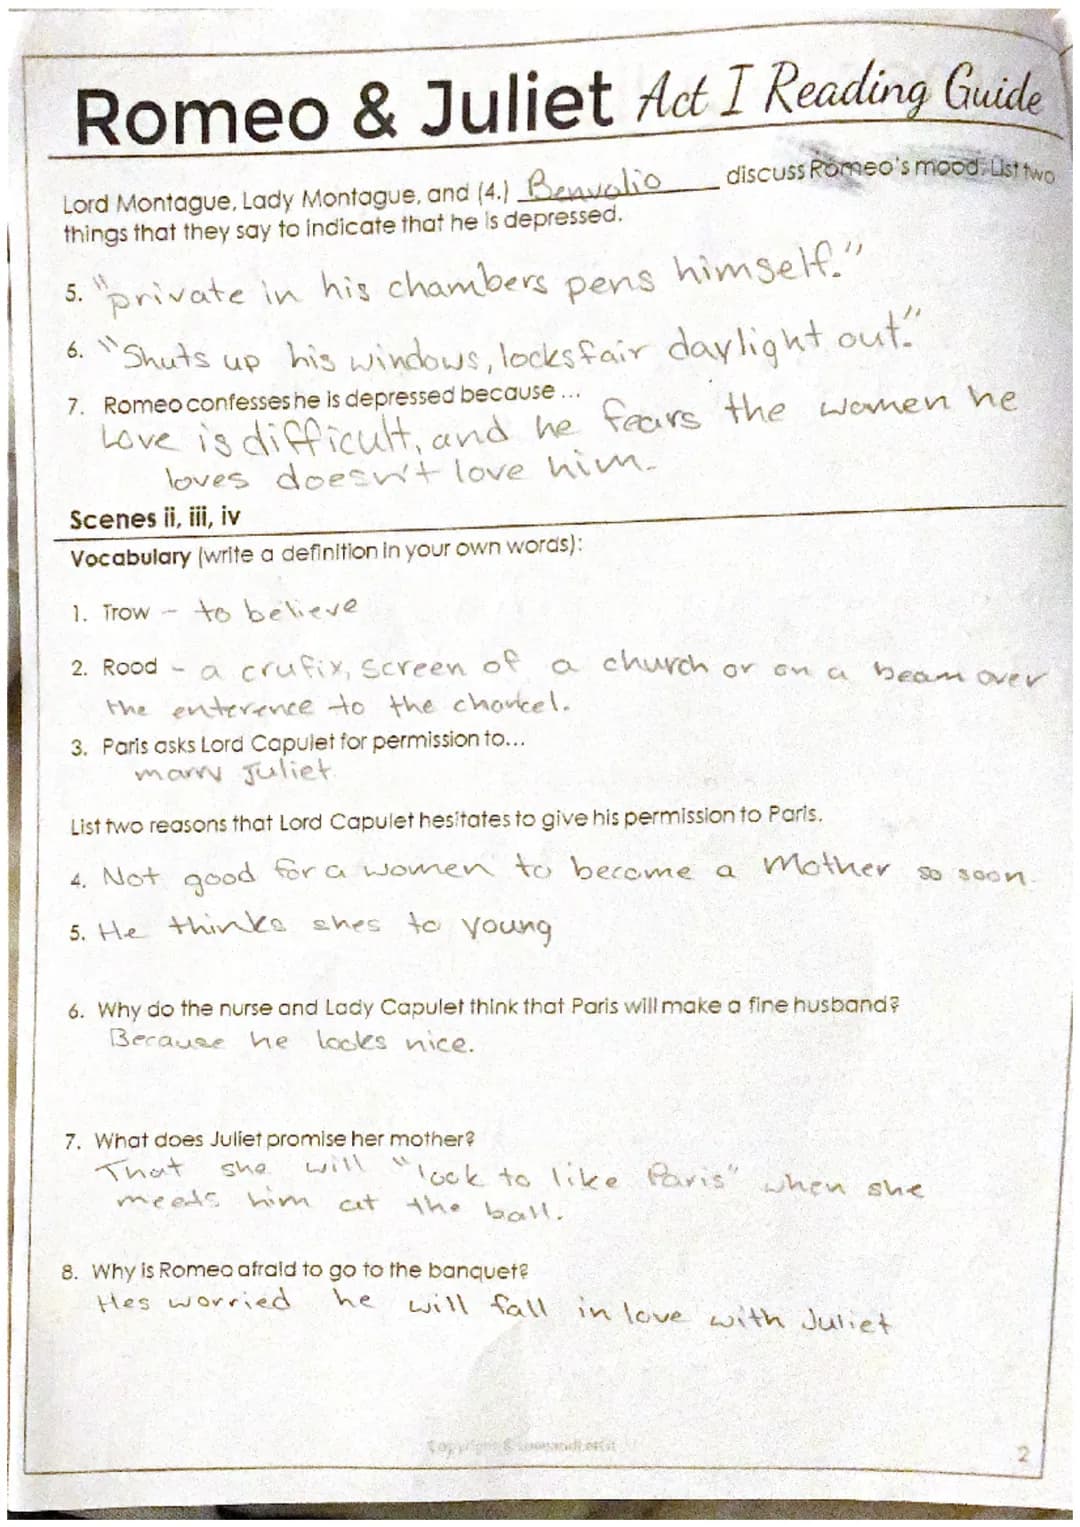 Romeo & Juliet Act I Reading Guide
Lord Montague, Lady Montague, and (4.) Benvalio discuss Romeo's mood. List two
things that they say to indicate that he is depressed.
5. "private in his chambers pens himself."
6. "Shuts up his windows, locks fair daylight out."
7. Romeo confesses he is depressed because ...
Love is difficult, and he fears the women he
loves doesn't love him.
Scenes ii, iii, iv
Vocabulary (write a definition in your own words):
1. Trow - to believe
2. Rood - a crufix, screen of a church or on a beam over
the enterence to the chancel.
3. Paris asks Lord Capulet for permission to...
marry Juliet
List two reasons that Lord Capulet hesitates to give his permission to Paris.
4. Not good for a women to become a Mother so soon.
5. He thinks shes to young
6. Why do the nurse and Lady Capulet think that Paris will make a fine husband?
Because he looks nice.
7. What does Juliet promise her mother?
That she will "look to like Paris" when she
meets him at the ball.
8. Why is Romeo afraid to go to the banquet?
Hes worried he will fall in love with Juliet
2